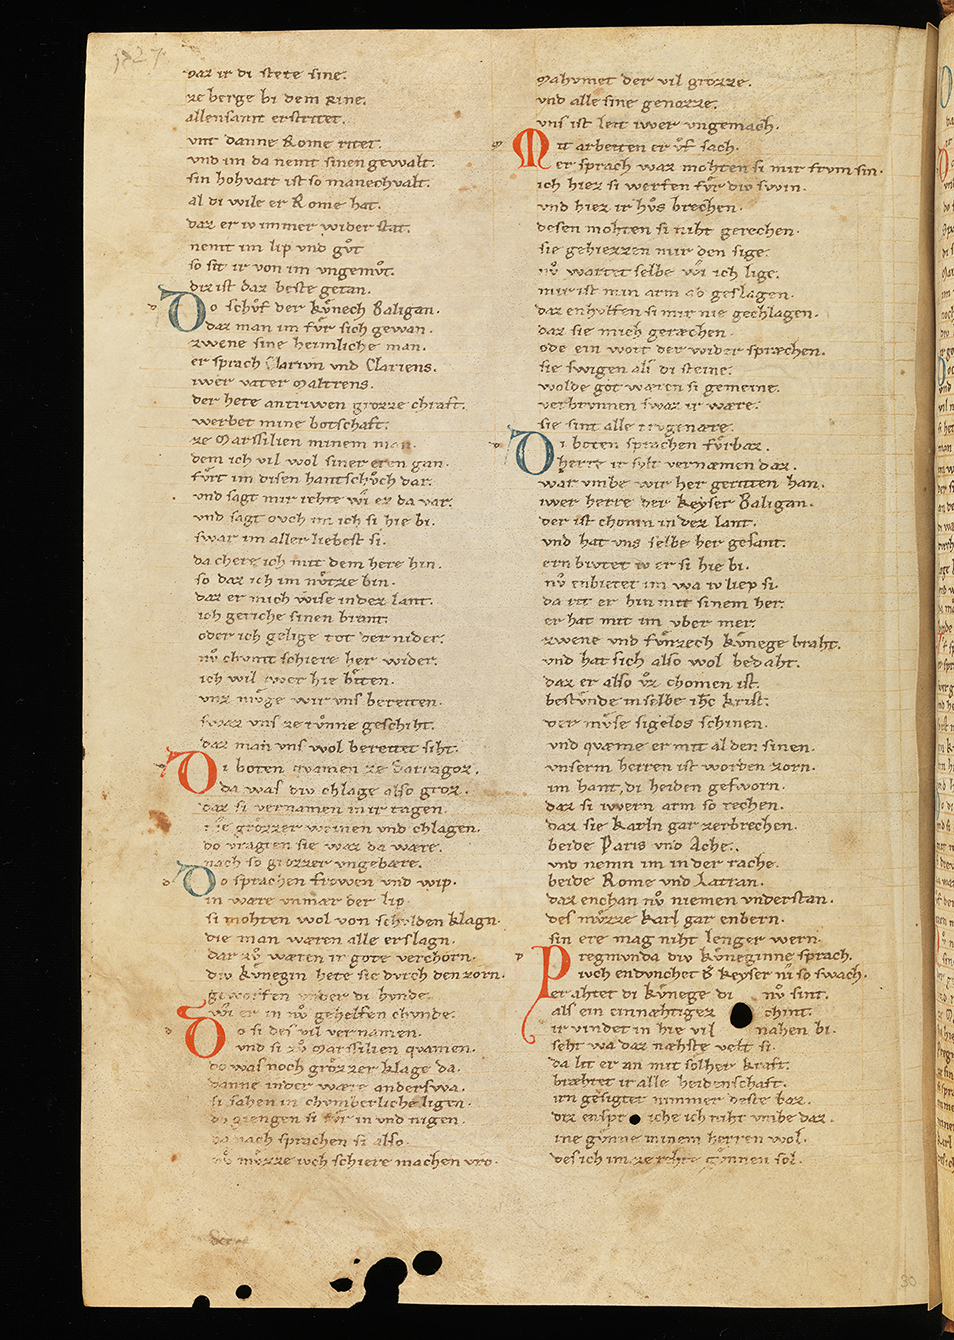 daz ir di stete sine.
ze berge bi dem Rine.
allensamt erstritet.
vnt danne Rome ritet.
vnd im da nemt sinen gewalt.
sin hohvart ist so manechvalt.
al di wile er Rome hat.
daz er iv immer wider stat.
nemt im lip vnd gvͦt
so sit ir von im vngemvͦt.
diz ist daz beste getan.
Do schvͦf der kvͤnech Baligan.
daz man im fvͤr sich gewan.
zwene sine heimliche man.
er sprach Clarivn vnd Clariens.
iwer vater Maltrens.
der hete antriwen grozze chraft.
werbet mine botschaft.
ze Marssilien minem man.
dem ich vil wol siner eren gan.
fvͤrt im disen hantschvͦch dar.
vnd sagt mir rehte wi ez da var.
vnd sagt ovch im ich si hie bi.
swar im aller liebest si.
da chere ich mit dem here hin.
so daz ich im nvͤtze bin.
daz er mich wise in dez lant.
ich geriche sinen brant.
oder ich gelige tot der nider.
nv chvmt schiere her wider.
ich wil iwer hie biten.
vnz mvͤge wir vns bereiten.
swaz vns ze tvͦnne geschiht.
daz man vns wol bereitet siht.
Di boten quamen ze Sarragoz.
da was div chlage also groz.
daz si vernamen in ir tagen.
nie grozzer weinen vnd chlagen.
do vragten sie waz da wære.
nach so grozzer vngebære.
Do sprachen frowen vnd wip.
in wære vnmær der lip.
si mohten wol von schvlden klagn.
die man wæren alle erslagn.
dar zvͦ wæren ir gote verchorn.
div kvͤnegin hete sie dvrch den zorn.
geworfen vnder di hvnde.
wi er in nv gehelfen chvnde.
Do si des vil vernamen.
vnd si zvͦ Marssilien quamen.
do was noch grozzer klage da.
danne inder wære anderswa.
si sahen in chvmberliche ligen.
do giengen si fvͤr in vnd nigen.
da nach sprachen si also.
nv mvͤzze ivch schiere machen vro.
Mahvmet der vil grozze.
vnd alle sine genozze.
vns ist leit iwer vngemach.
Mit arbeiten er vf sach.
er sprach waz mohten si mir frvm sin.
ich hiez si werfen fvͤr div swin.
vnd hiez ir hvͦs brechen.
desen mohten si niht gerechen.
sie gehiezzen mir den sige.
nv wartet selbe wi ich lige.
mir ist min arm ab geslagen.
daz enhvlfen si mir nie gechlagen.
daz sie mich geræchen.
ode ein wort der wider spræchen.
sie swigen als di steine.
wolde got wæren si gemeine.
verbrvnnen swaz ir wære.
sie sint alle trvgenære.
Di boten sprachen fvͤrbaz.
herre ir svlt vernæmen daz.
war vmbe wir her geritten han.
iwer herre der keyser Baligan.
der ist chomn in dez lant.
vnd hat vns selbe her gesant.
ern bivtet iv er si hie bi.
nv enbietet im wa iv liep si.
da rit er hin mit sinem her.
er hat mit im vber mer.
zwene vnd fvͤnzech kvͤnege braht.
vnd hat sich also wol bedaht.
daz er also vz chomen ist.
bestvnde in selbe ihc krist.
der mvͤse sigelos schinen.
vnd quæme er mit al den sinen.
vnserm herren ist worden zorn.
im hant di heiden gesworn.
daz si iwern arm so rechen.
daz sie karln gar zerbrechen.
beide Paris vnd Ache.
vnd nemn im in der rache.
beide Rome vnd Latran.
daz enchan nv niemen vnderstan.
des mvͤzze karl gar enbern.
sin ere mag niht lenger wern.
Pregmvnda div kvͤneginne sprach.
ivch endvnchet d' keyser niv so swach.
er ahtet di kvͤnege di nv sint.
als ein einnæhtigez chint.
ir vindet in hie vil nahen bi.
seht wa daz næhste velt si.
da lit er an mit solher kraft.
bræhtet ir alle heidenschaft.
irn gesiget nimmer deste baz.
diz enspriche ich niht vmbe daz.
ine gvͤnne minem herren wol.
des ich im ze rehte gvͤnnen sol.
30